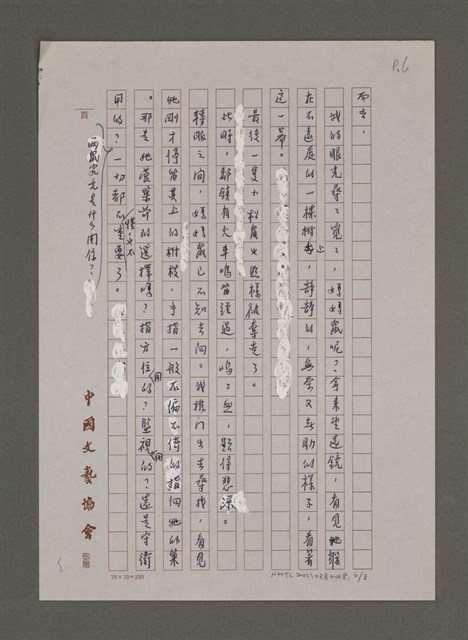 P.6
而去。
我的眼光尋尋覓覓，媽媽鼠呢？拿來望遠鏡，看見她躲
在不遠處的一棵樹上，靜靜的，無奈又無助的樣子，看著
這一幕。
最後一隻小松鼠也照樣被奪走了。
此時，鄰鎮有火車鳴笛經過，嗚嗚，顯得悲涼。
轉眼之間，媽媽鼠已不知去向。我推門出去尋找，看見
她剛才停留其上的樹枝，手指一般不偏不倚的指向她的巢
。那是她營巢前的選擇嗎？指方位用的？監視用的？還是守衛
用的？一切都不重要了。
兩鼠究竟是什麼關係？
頁
中國文藝協會
25×10=250
NMTL 6/8